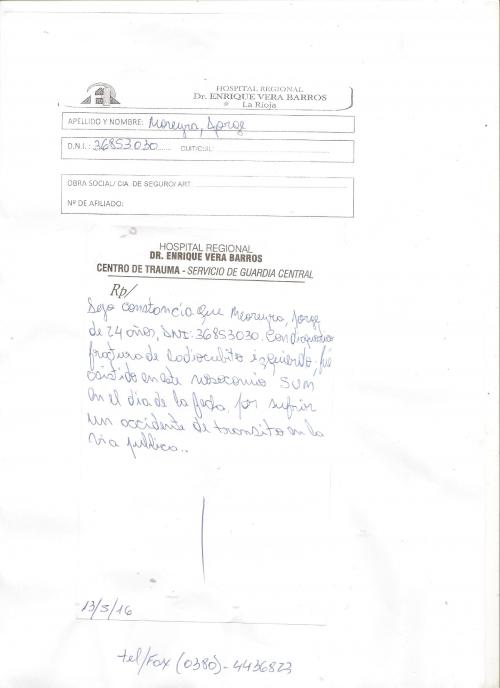 HOSPITAL REGIONAL
Dr. ENRIQUE VERA BARROS
La Rioja
APELLIDO Y NOMBRE: Moreyra, Jorge
D.N.I.: 36853030 CUIT/CUIL:
OBRA SOCIAL/ CIA. DE SEGURO/ ART
Nº DE AFILIADO:
HOSPITAL REGIONAL
DR. ENRIQUE VERA BARROS
CENTRO DE TRAUMA - SERVICIO DE GUARDIA CENTRAL
Rp/
Dejo constancia que Moreyra, Jorge
de 24 años, DNI: 36853030. Con diagnostico
fractura de radiocubito izquierdo, fue
asistido en este nosocomio SUM
en el dia de la fecha, por sufrir
un accidente de transito en la
via publica..
13/5/16
tel/Fax (0380)-4436823